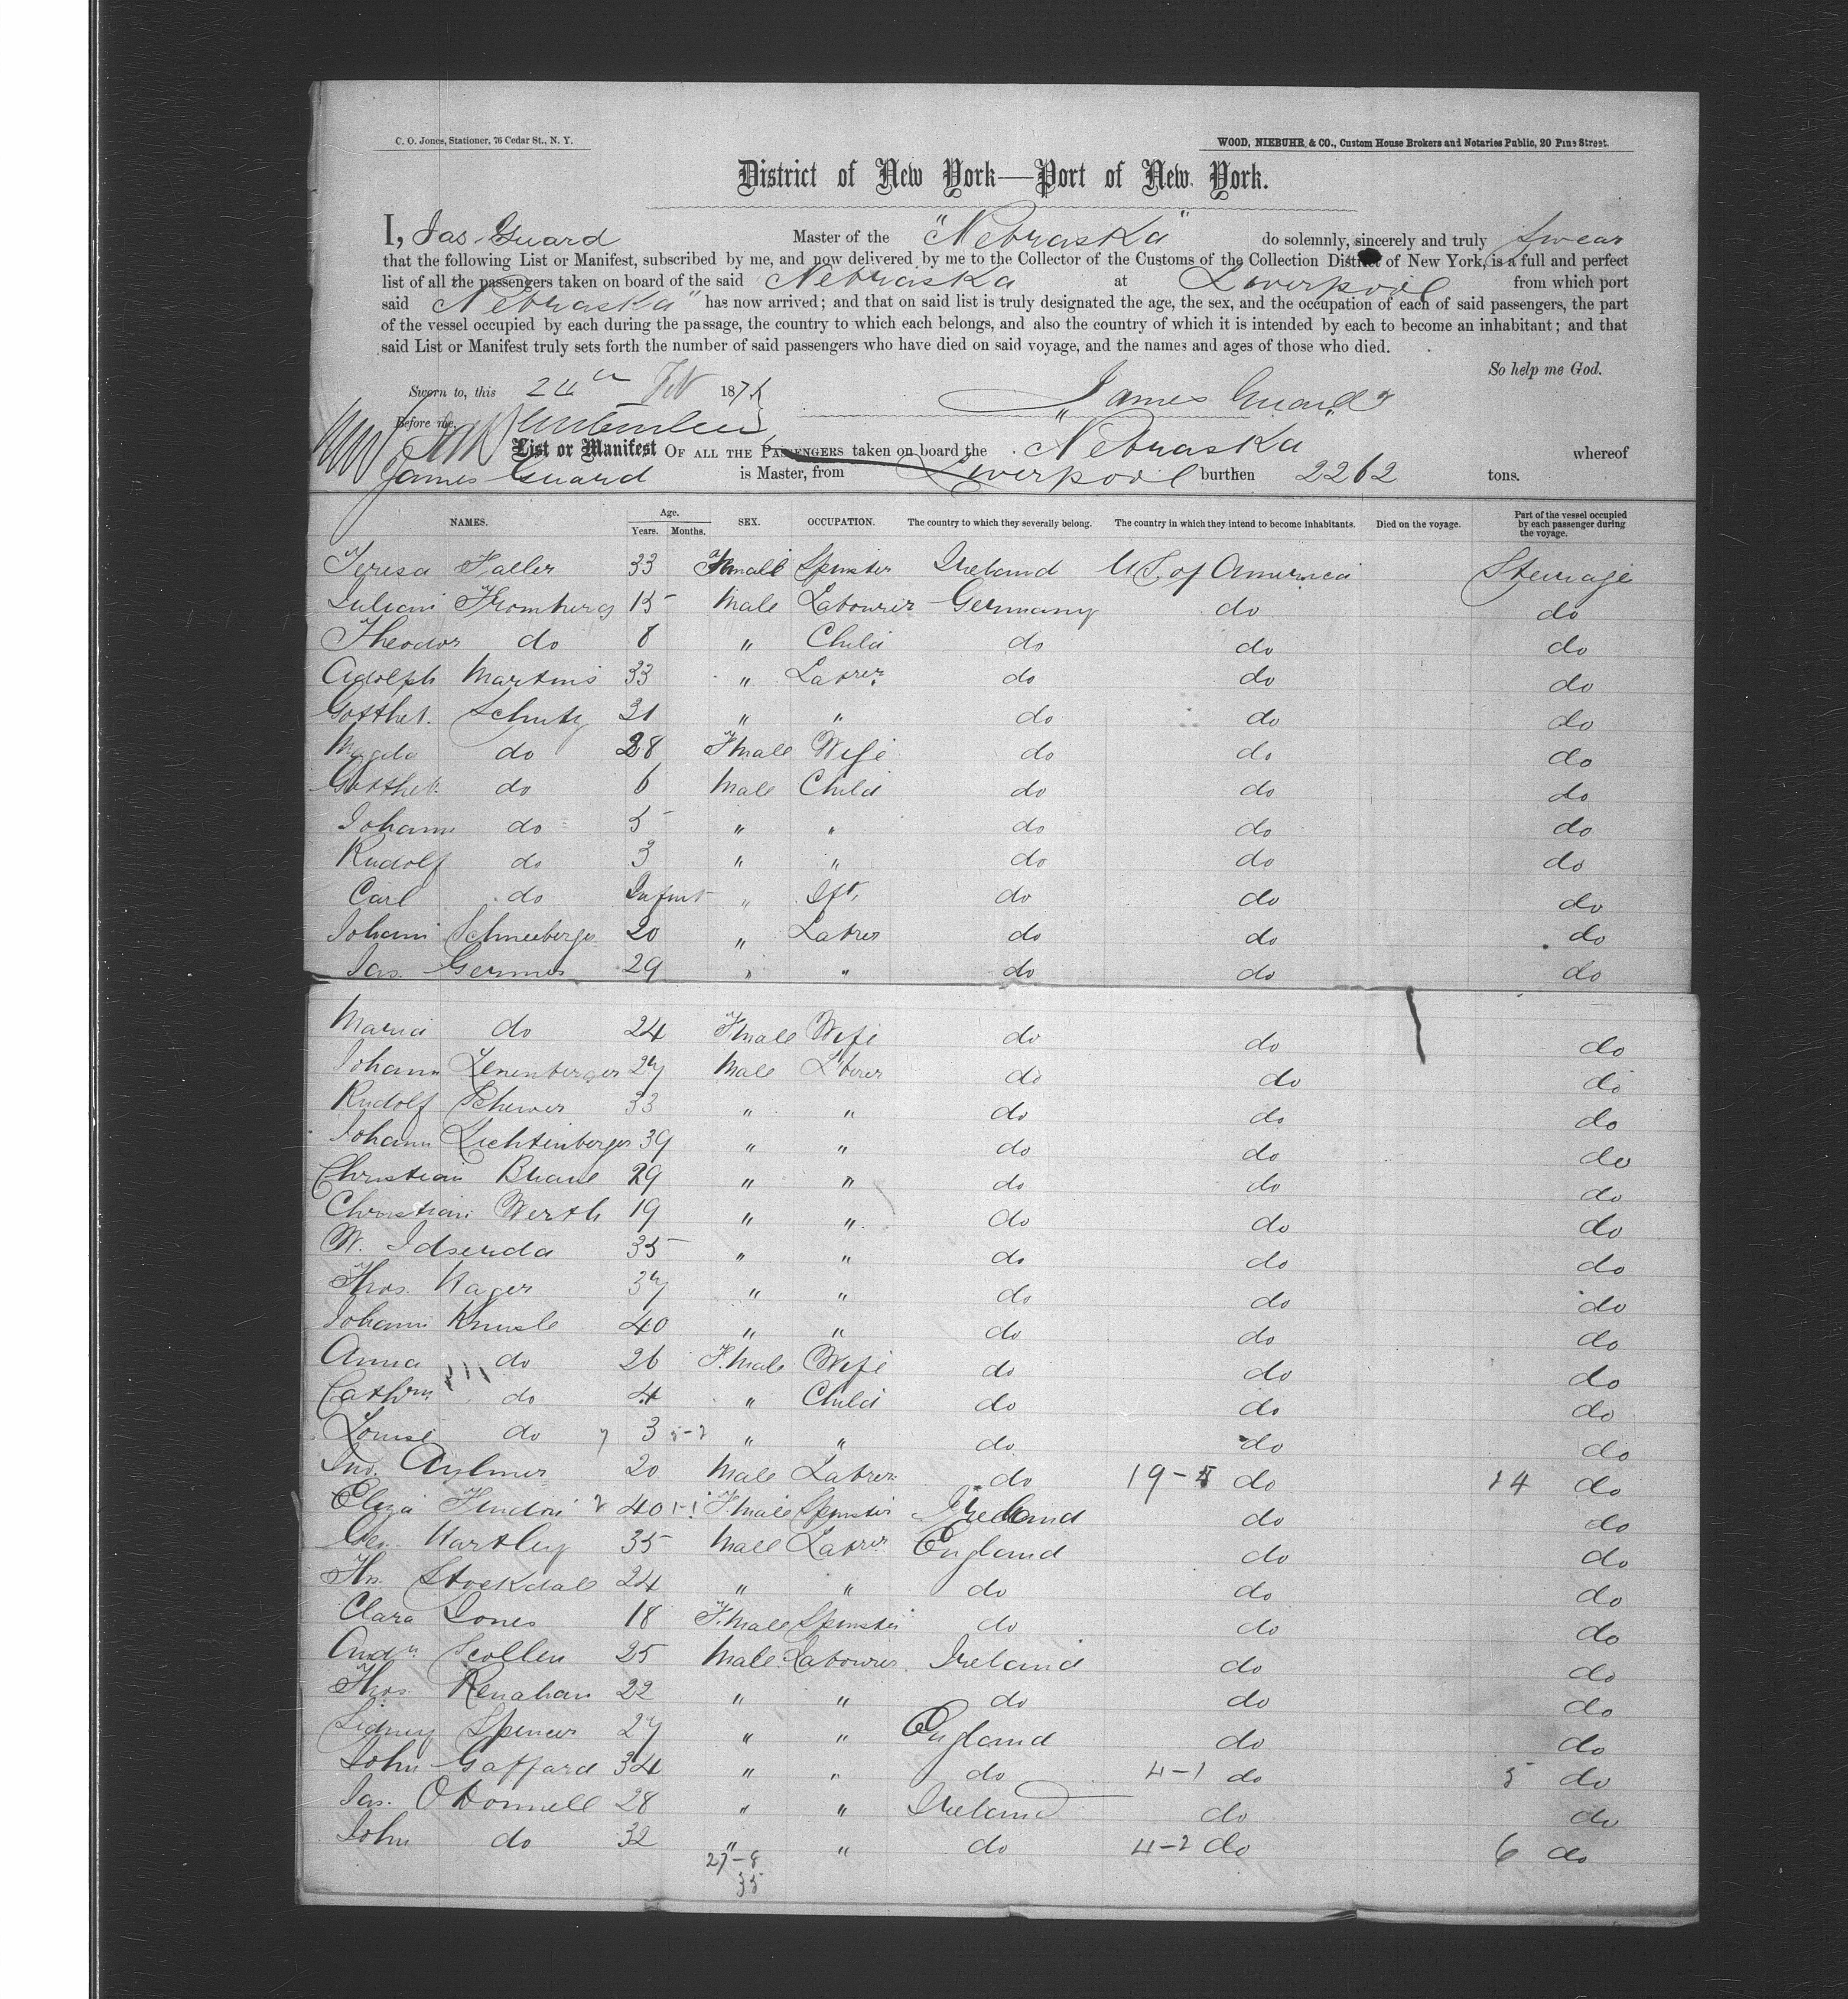 C. O. Jones, Stationer, 76 Cedar St., N. Y.
WOOD, NIEBUHR & CO., Custom House Brokers and Notaries Public, 20 Pine Street.
District of New York—Port of New York.
I, Jas Guard Master of the "Nebraska" do solemnly, sincerely and truly swear
that the following List or Manifest, subscribed by me, and now delivered by me to the Collector of the Customs of the Collection District of New York, is a full and perfect
list of all the passengers taken on board of the said Nebraska at Liverpool from which port
said Nebraska" has now arrived; and that on said list is truly designated the age, the sex, and the occupation of each of said passengers, the part
of the vessel occupied by each during the passage, the country to which each belongs, and also the country of which it is intended by each to become an inhabitant; and that
said List or Manifest truly sets forth the number of said passengers who have died on said voyage, and the names and ages of those who died.
So help me God.
Sworn to, this Feb 187 James Guard
Before me,
List or Manifest OF ALL THE PASSENGERS taken on board the "Nebraska" whereof
James Guard is Master, from Liverpool burthen 2262 tons.
NAMES. Age. Years. Months. SEX. OCCUPATION. The country to which they severally belong. The country in which they intend to become inhabitants. Died on the voyage. Part of the vessel occupied by each passenger during the voyage.
Teresa Faller 33 Female Spinster Ireland U S of America Steerage
Fromberg 15 Male Labourer Germany do do
Theodor do 8 " Child do do do
Adolph Martins 33 " Labrer do do do
Gotthel. Schutz 31 " " do do do
Magda do 28 Fmale Wife do do do
Gotthel. do 6 Male Child do do do
Johann do 5 " " do do do
Rudolf do 3 " " do do do
Carl do Infant " Ift. do do do
Johann Schneeberger 20 " Labrer do do do
Jas. Germes 29 " " do do do
Maria do 24 Fmale Wife do do do
Johann Zenenberger 27 Male L'brer do do do
Rudolf Scherrer 33 " " do do do
Johann Lichtenberger 39 " " do do do
Christian 29 " " do do do
Christian Werth 19 " " do do do
W. Idserda 35 " " do do do
Thos. Hager 37 " " do do do
Johann Knusle 40 " " do do do
Anna do 26 F.male Wife do do do
Cathrn do 4 " Child do do do
Louise do 7 3 5-2 " " do do do
Jno. Aylmer 20 Male Labrer do 19-5 do 24 do
Eliza 2 40 1-1 F.male Spinster Ireland do do
Geo. Hartley 35 Male Labrer England do do
Ths. Stockdale 24 " " do do do
Clara Jones 18 F.male Spinster do do do
Andw. Scollen 25 Male Labourer Ireland do do
Thos. Renahan 22 " " do do do
Sidney Spencer 27 " " England do do
John Gaffard 34 " " do 4-1 do 5 do
Jas. O'Donnell 28 " " Ireland do do
John do 32 " " do 4-2 do 6 do
27-8
35